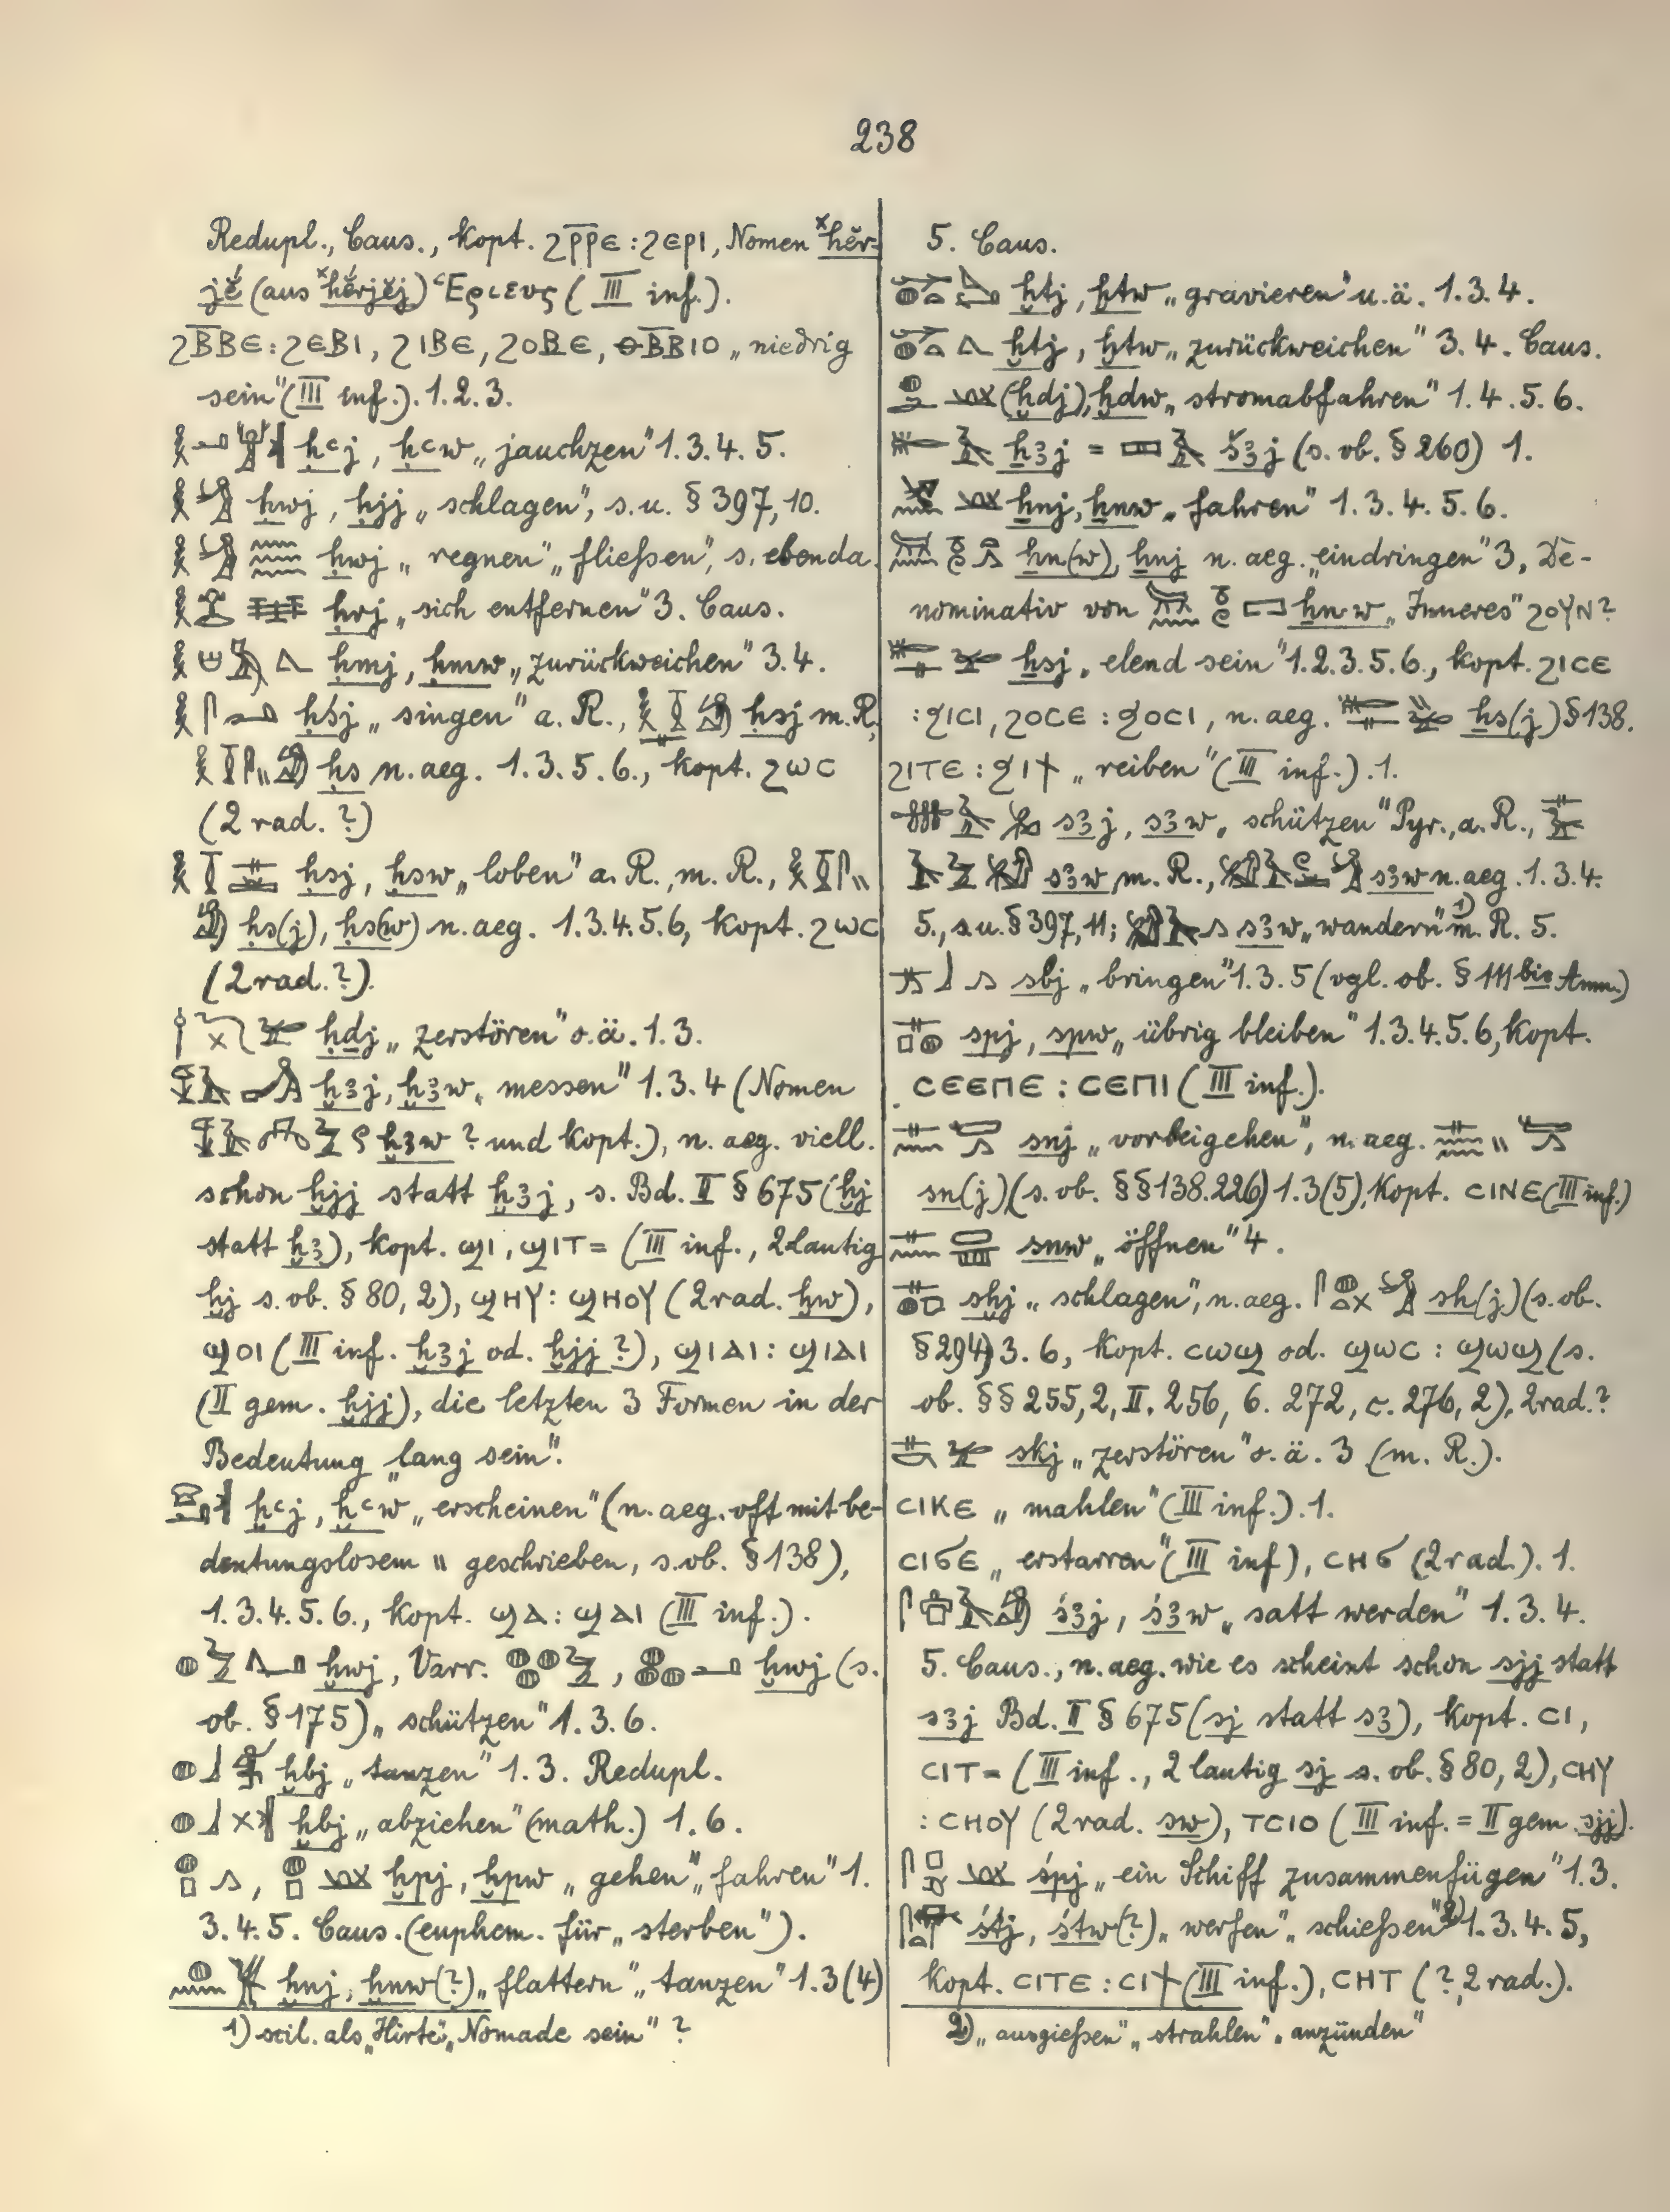 238
Redupl., Caus., kopt. ϩⲣ̅ⲣ̅ⲉ : ϩⲉⲣⲓ, Nomen ˣḥĕr-
jĕ́ (aus ˣḥĕrjĕ́j) Ἑριευς (III inf.).
ϩⲃ̅ⲃⲉ : ϩⲉⲃⲓ, ϩⲓⲃⲉ, ϩⲟⲃⲉ, ⲑⲃ̅ⲃⲓⲟ „niedrig
sein" (III inf.). 1. 2. 3.
ḥꜥj, ḥꜥw „jauchzen" 1. 3. 4. 5.
ḥwj, ḥjj „schlagen", s. u. § 397, 10.
ḥwj „regnen" „fließen", s. ebenda.
ḥrj „sich entfernen" 3. Caus.
ḥmj, ḥmw „zurückweichen" 3. 4.
ḥśj „singen" a. R., ḥsj m. R.,
ḥs n. aeg. 1. 3. 5. 6., kopt. ϩⲱⲥ
(2 rad. ?)
ḥsj, ḥsw „loben" a. R., m. R.,
ḥs(j), ḥs(w) n. aeg. 1. 3. 4. 5. 6, kopt. ϩⲱⲥ
(2 rad. ?).
ḥḏj „zerstören" o. ä. 1. 3.
ḫꜣj, ḫꜣw „messen" 1. 3. 4 (Nomen
ḫꜣw ? und kopt.), n. aeg. viell.
schon ḫjj statt ḫꜣj, s. Bd. II § 675 (ḫj
statt ḫꜣ), kopt. ϣⲓ, ϣⲓⲧ= (III inf., 2 lautig
ḫj s. ob. § 80, 2), ϣⲏⲩ : ϣⲏⲟⲩ (2 rad. ḫw),
ϣⲟⲓ (III inf. ḫꜣj od. ḫjj ?), ϣⲓⲁⲓ : ϣⲓⲁⲓ
(II gem. ḫjj), die letzten 3 Formen in der
Bedeutung „lang sein".
ḫꜥj, ḫꜥw „erscheinen" (n. aeg. oft mit be-
deutungslosem \\ geschrieben, s. ob. § 138),
1. 3. 4. 5. 6., kopt. ϣⲁ : ϣⲁⲓ (III inf.).
ḫwj, Varr. , ḫwj (s.
ob. § 175) „schützen" 1. 3. 6.
ḫbj „tanzen" 1. 3. Redupl.
ḫbj „abziehen" (math.) 1. 6.
, ḫpj, ḫpw „gehen" „fahren" 1.
3. 4. 5. Caus. (euphem. für „sterben").
ḫnj, ḫnw(?) „flattern" „tanzen" 1. 3 (4)
1) scil. als „Hirte", „Nomade sein" ?
5. Caus.
ḫtj, ḫtw „gravieren" u. ä. 1. 3. 4.
ḫtj, ḫtw „zurückweichen" 3. 4. Caus.
(ḫdj), ḫdw „stromabfahren" 1. 4. 5. 6.
ẖꜣj = šꜣj (s. ob. § 260) 1.
ẖnj, ẖnw „fahren" 1. 3. 4. 5. 6.
ẖn(w), ẖnj n. aeg. „eindringen" 3, De-
nominativ von ẖnw „Inneres" ϩⲟⲩⲛ ?
ẖsj „elend sein" 1. 2. 3. 5. 6., kopt. ϩⲓⲥⲉ
: ϧⲓⲥⲓ, ϩⲟⲥⲉ : ϧⲟⲥⲓ, n. aeg. ẖs(j) § 138.
ϩⲓⲧⲉ : ϧⲓϯ „reiben" (III inf.). 1.
sꜣj, sꜣw „schützen" Pyr., a. R.,
sꜣw m. R., sꜣw n. aeg. 1. 3. 4.
5., s. u. § 397, 11; sꜣw „wandern" 1) m. R. 5.
sbj „bringen" 1. 3. 5 (vgl. ob. § 111 bis Anm.)
spj, spw „übrig bleiben" 1. 3. 4. 5. 6, kopt.
ⲥⲉⲉⲡⲉ : ⲥⲉⲡⲓ (III inf.).
snj „vorbeigehen", n. aeg.
sn(j) (s. ob. §§ 138. 226) 1. 3 (5), kopt. ⲥⲓⲛⲉ (III inf.)
snw „öffnen" 4.
sḫj „schlagen", n. aeg. sḫ(j) (s. ob.
§ 294) 3. 6, kopt. ⲥⲱϣ od. ϣⲱⲥ : ϣⲱϣ (s.
ob. §§ 255, 2, II. 256, 6. 272, c. 276, 2), 2 rad. ?
skj „zerstören" o. ä. 3 (m. R.).
ⲥⲓⲕⲉ „mahlen" (III inf.). 1.
ⲥⲓϭⲉ „erstarren" (III inf), ⲥⲏϭ (2 rad.). 1.
śꜣj, śꜣw „satt werden" 1. 3. 4.
5. Caus., n. aeg. wie es scheint schon sjj statt
sꜣj Bd. II § 675 (sj statt sꜣ), kopt. ⲥⲓ,
ⲥⲓⲧ= (III inf., 2 lautig sj s. ob. § 80, 2), ⲥⲏⲩ
: ⲥⲏⲟⲩ (2 rad. sw), ⲧⲥⲓⲟ (III inf. = II gem. sjj).
śpj „ein Schiff zusammenfügen" 1. 3.
śtj, śtw(?) „werfen" „schießen" 2) 1. 3. 4. 5,
kopt. ⲥⲓⲧⲉ : ⲥⲓϯ (III inf.), ⲥⲏⲧ (?, 2 rad.).
2) „ausgießen" „strahlen" „anzünden"